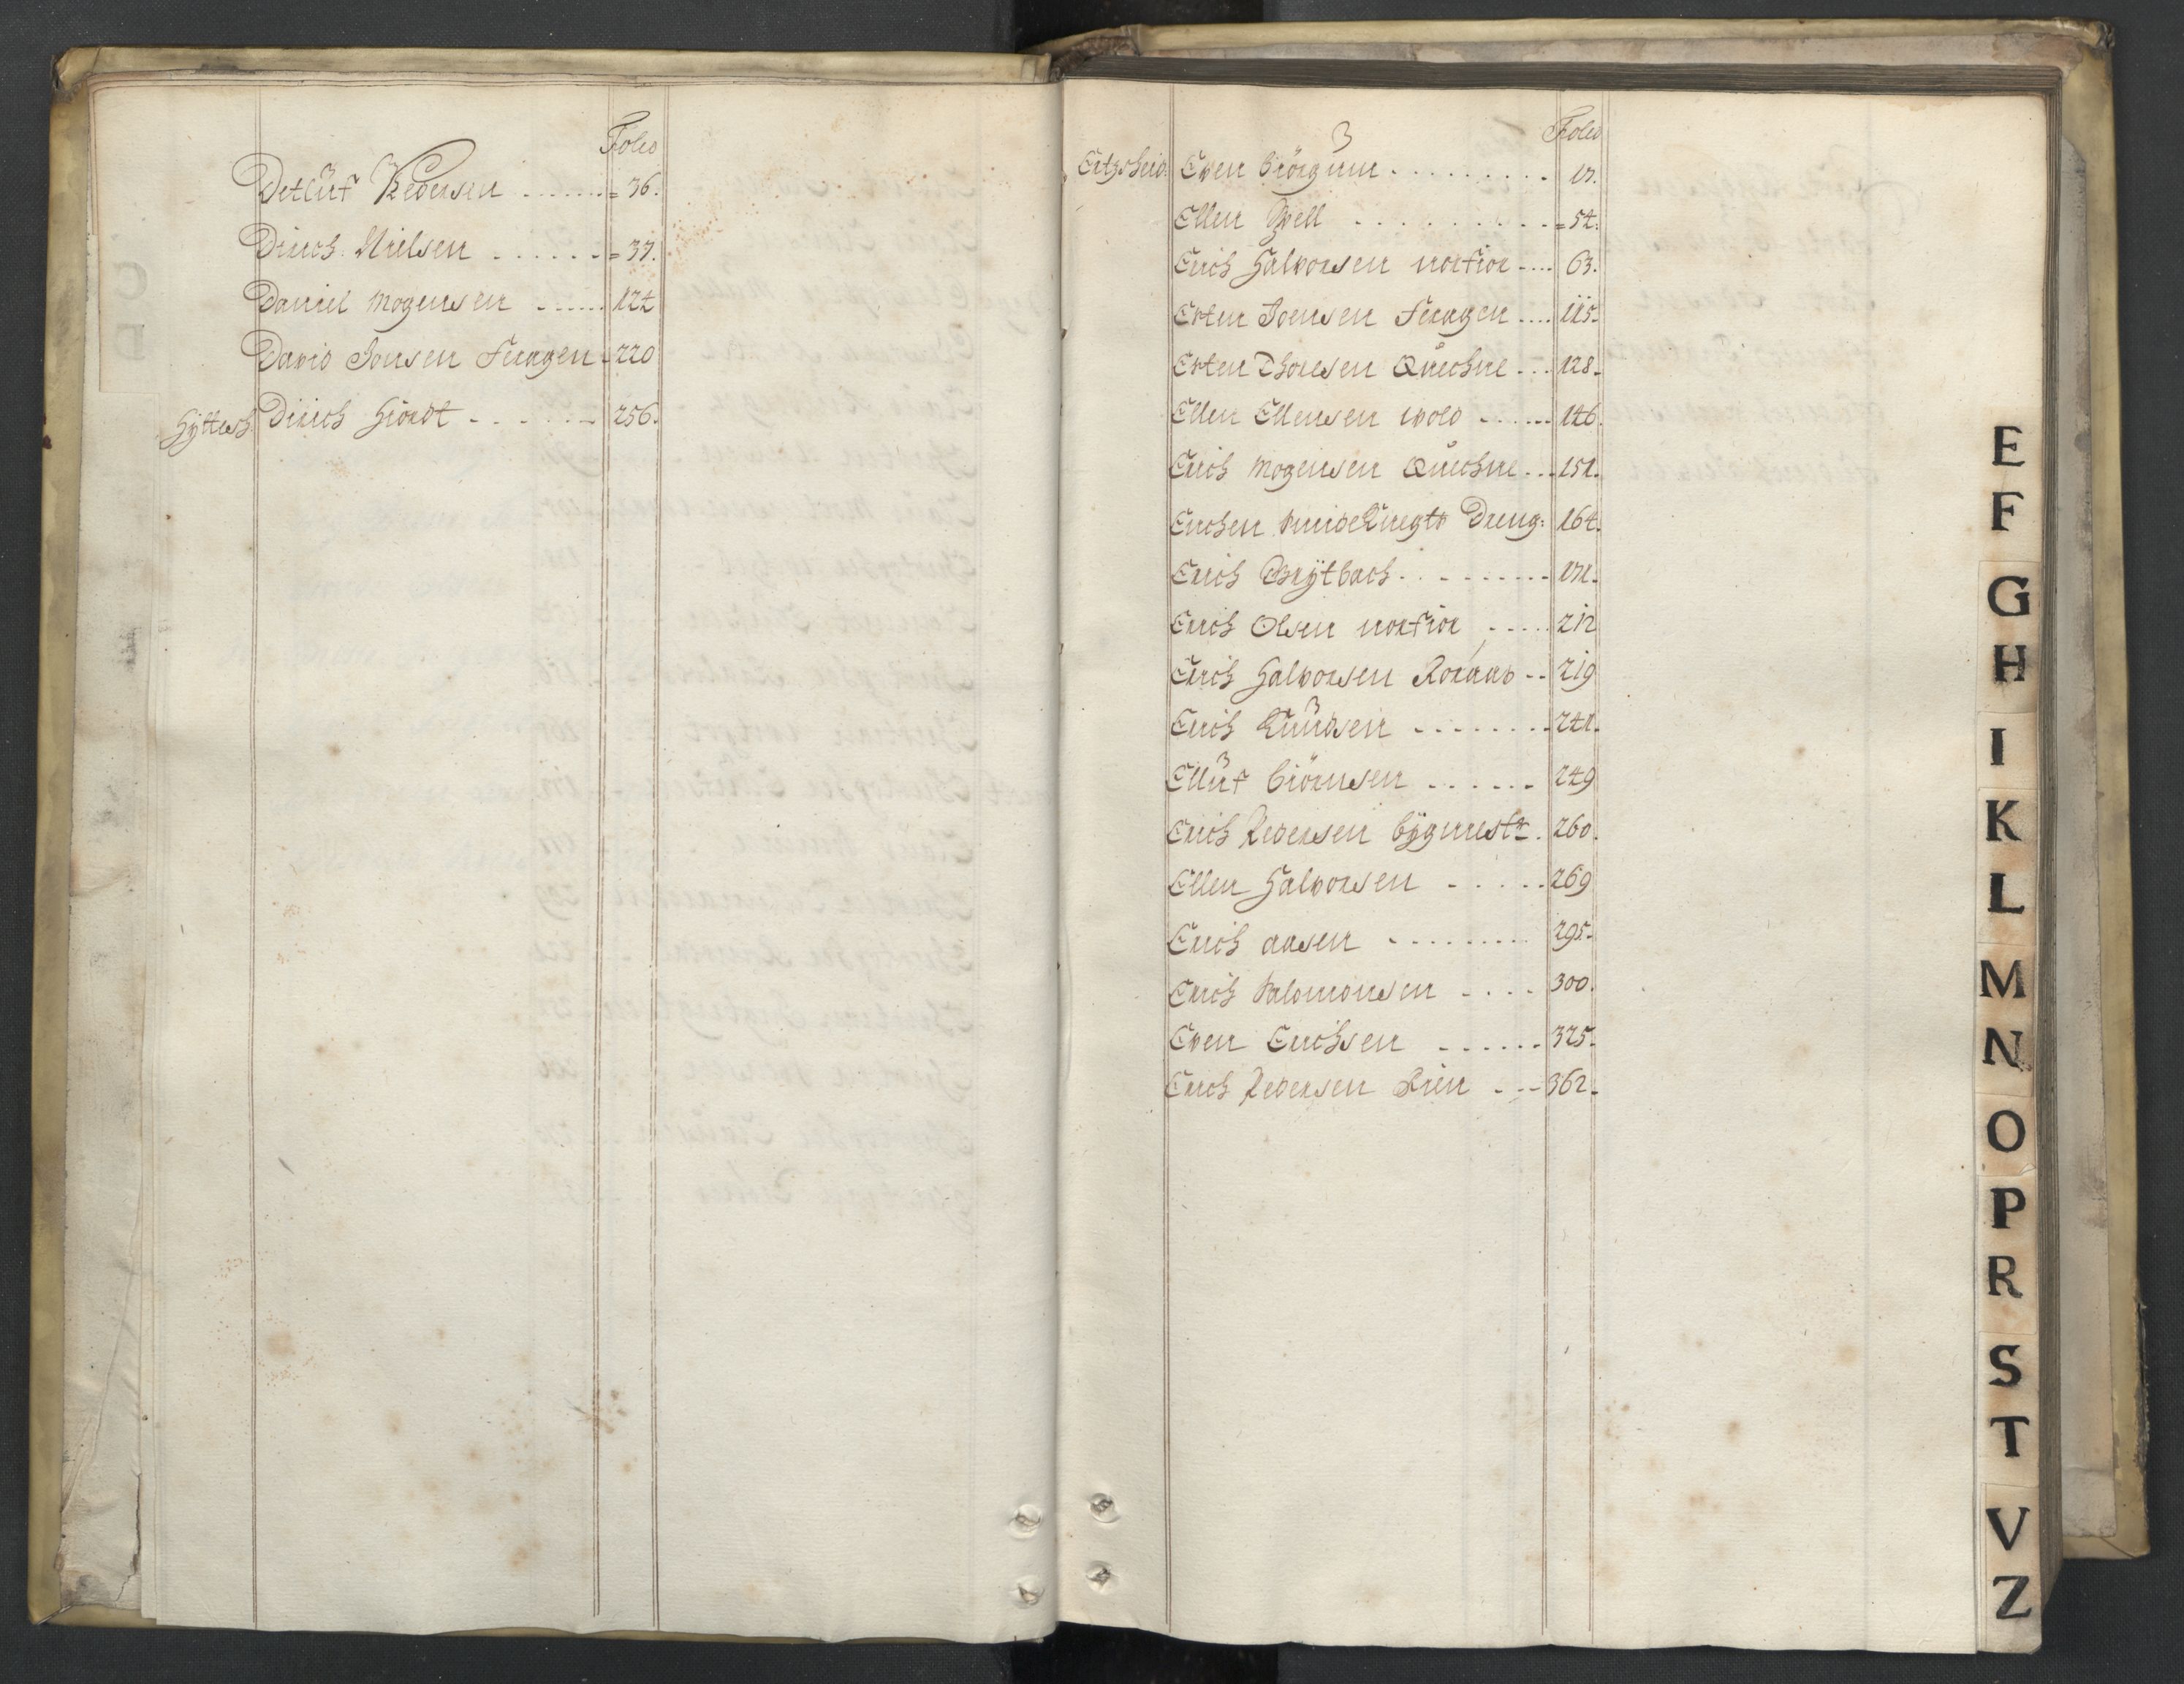 Folio
Detluf Pedersen ....... = 36.
Dirich Nielsen ...... = 37.
Daniel Mogensen ..... 124
David Jonsen Feragen - 220
Hyttesch. Dirich Hiordt - - - - - 256.
C
D
Folio
Ertzscheid: Even Giörgum ......... 17.
Ellen Well ......... = 54.
Erich Halvorsen norfior .... 63.
Erten Joensen Feragen .... 115.
Erten Thoresen Quechne ... 128.
Ellen Ellensen wold ...... 146.
Erich Mogensen Quechne ... 151.
Erichen SmideKnegts Dreng: 164.
Erich Brÿtbach ......... 171.
Erich Olsen norfior ..... 212
Erich Halvorsen Roraas -- 219
Erich Knudsen ........ 241.
Elluf Giörnsen ...... 249
Erich Pedersen bÿgmestr. 260.
Ellen Halvorsen ..... 269
Erich aasen ......... 295.
Erich Salomonsen .... 300.
Even Erichsen ...... 325.
Erich Pedersen Rien --- 362.
E
F
G
H
I
K
L
M
N
O
P
R
S
T
V
Z